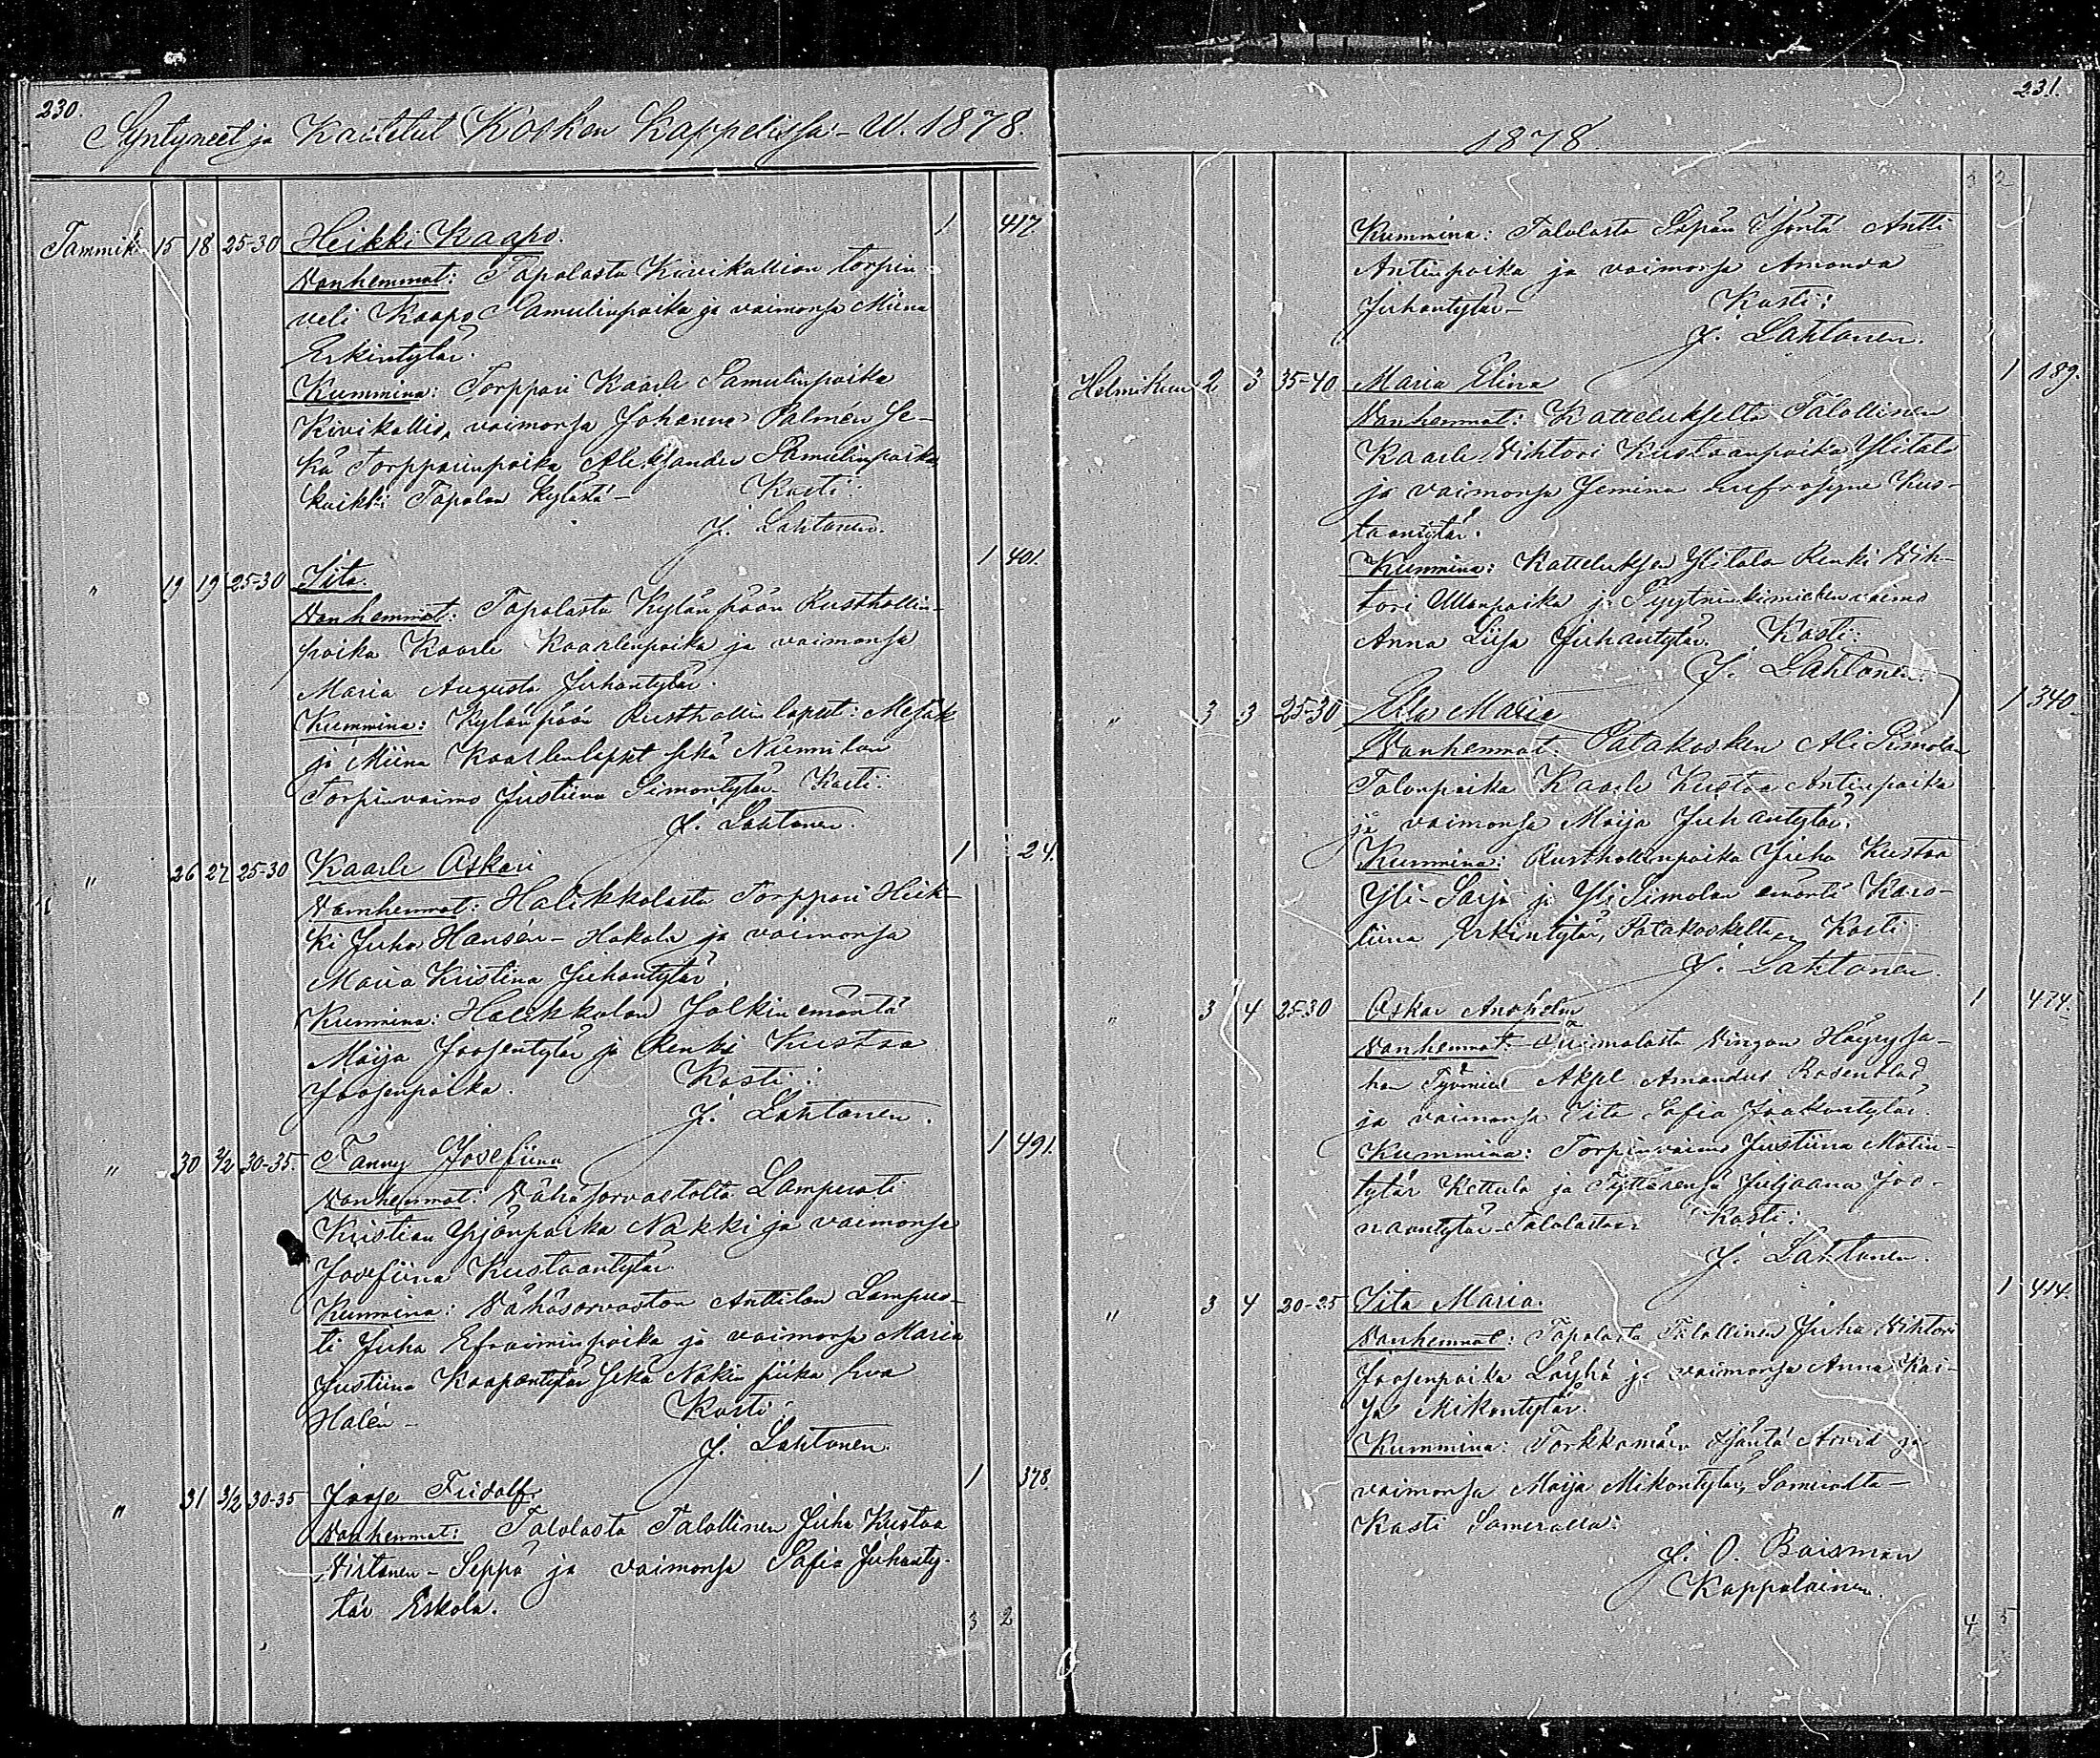 230.
Syntyneet ja Kastetut Kosken Kappelissa - W. 1878.
Tammik. 15 18 25-30 Heikki Kaapo. 1 417
Vanhemmat: Tapalasta Kivikallion torpin
veli Kaapo Samulinpoika ja vaimonsa Miina
Erkintytär.
Kummina: Torppari Kaarle Samulinpoika
Kivikallio, vaimonsa Johanna Palmén Se-
kä Torpparinpoika Aleksander Samulinpoika
kaikki Tapalan kylästä - Kasti:
J. Lahtonen.
" 19 19 25-30 Iita. 1 401.
Vanhemmat: Tapalasta Kylänpään Rusthollin-
poika Kaarle Kaarlenpoika ja vaimonsa
Maria Augusta Juhantytär.
Kummina: Kylänpään Rusthollin lapset: Mesak
ja Miina Kaarlenlapset sekä Niemilan
Torpinvaimo Justiina Simontytär. Kasti:
J. Lahtonen.
" 26 27 25-30 Kaarle Oskari 1 24.
Vanhemmat: Halikkolasta Torppari Heik-
ki Juha Hansén - Hakala ja vaimonsa
Maria Kristiina Juhantytär.
Kummina: Halikkolan Jalkin emäntä
Maija Joosentytär ja Renki Kustaa
Joosenpoika. Kasti:
J. Lahtonen.
" 30 2/2 30-35. Fanny Josefiina 1 491.
Vanhemmat: Vähäsorvastolta Lampuoti
Kristian Yrjönpoika Nakki ja vaimonsa
Josefiina Kustaantytär.
Kummina: Vähäsorvaston Anttilan Lampuo-
ti Juha Efraiminpoika ja vaimonsa Maria
Justiina Kaapontytär Sekä Nakin piika Eva
Halén - Kasti:
J. Lahtonen.
" 31 3/2 30-35 Joose Fridolf. 1 378.
Vanhemmat: Talolasta Talollinen Juha Kustaa
Virtanen - Seppä ja vaimonsa Sofia Juhanty-
tär Eskola.
3 2
231.
1878.
3 2
Kummina: Talolasta Isäntä Antti
Antinpoika ja vaimonsa Amanda
Juhantytär - Kasti:
J. Lahtonen.
Helmikuu 2 3 35-40 Maria Elina 1 189.
Vanhemmat: Kattelukselta Talollinen
Kaarle Vihtori Kustaanpoika Ylitalo
ja vaimonsa Jemina Eufrosyne Kus-
taantytär.
Kummina: Katteluksen Ylitalon Renki Vih-
tori Ullanpoika ja vaimo
Anna Liisa Juhantytär. Kasti:
J. Lahtonen.
" 3 3 25-30 Ida Maria 1 340.
Vanhemmat: Patakosken Ali Simolan
Talonpoika Kaarle Kustaa Antinpoika
ja vaimonsa Maija Juhantytär.
Kummina: Rusthollinpoika Juha Kustaa
Yli-Sarja ja Yli Simolan emäntä Karo-
liina Erkintytär, Patakoskelta. Kasti
J. Lahtonen.
" 3 4 25-30 Oskar Anshelm 1 474.
Vanhemmat:
Työmies Aksel Amandus Rosenblad
ja vaimonsa Iita Sofia Jaakontytär.
Kummina: Torpinvaimo Justiina Matin-
tytär Kettula ja Tyttärensä Juljaana Joo-
naantytär Talolasta. Kasti:
J. Lahtonen.
" 3 4 20-25 Iita Maria. 1 414.
Vanhemmat: Tapalasta Talollinen Juha Vihtori
Joosenpoika Löyhä ja vaimonsa Anna Kai-
sa Mikontytär.
Kummina: Torkkomäen Isäntä Arvid ja
vaimonsa Maija Mikontytär, Somerolta -
Kasti Somerolla:
J. O. Boisman
Kappalainen.
4 5